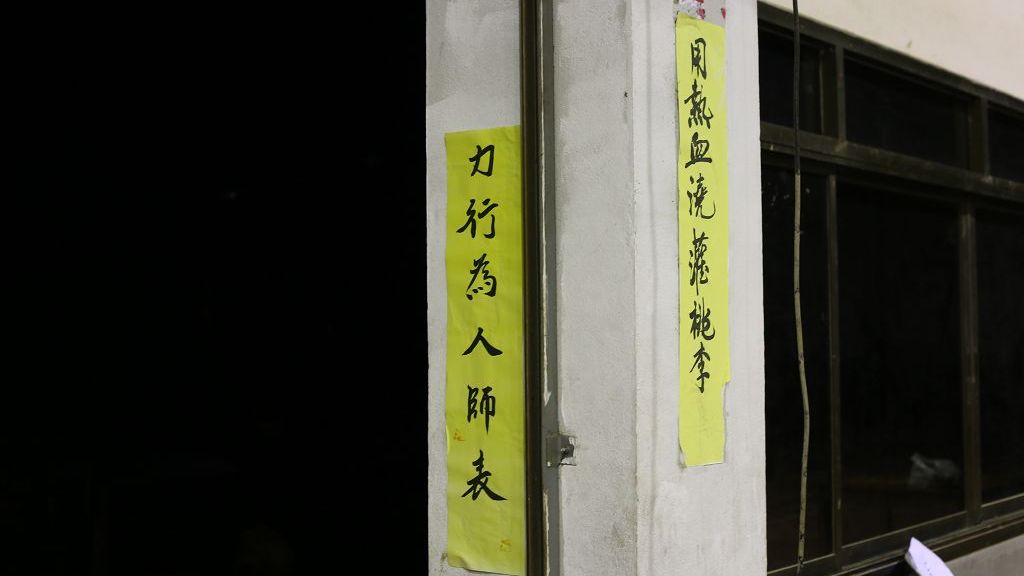 用熱血澆灌桃李
力行為人師表